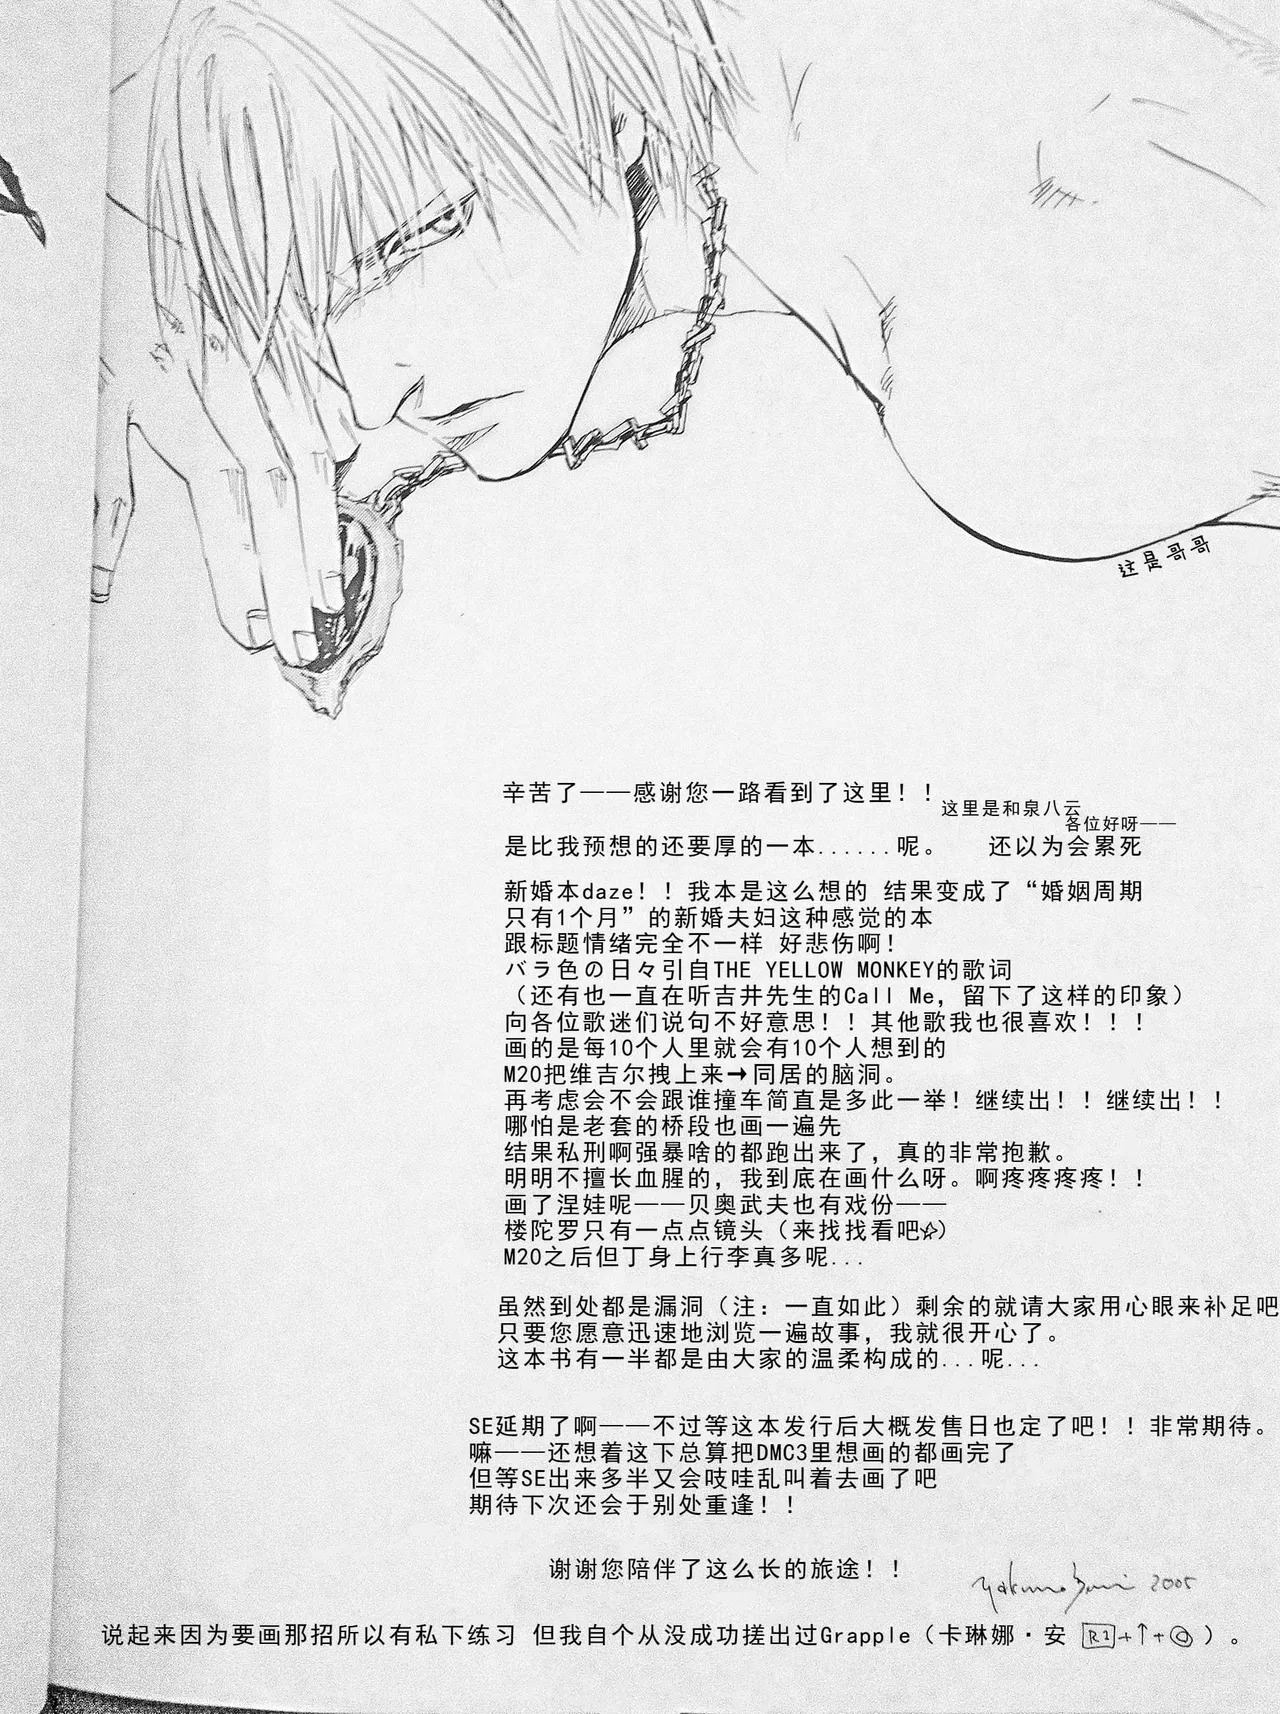 这是哥哥
辛苦了——感谢您一路看到了这里！！
这里是和泉八云
各位好呀——
是比我预想的还要厚的一本......呢。 还以为会累死
新婚本daze！！我本是这么想的 结果变成了“婚姻周期
只有1个月”的新婚夫妇这种感觉的本
跟标题情绪完全不一样 好悲伤啊！
バラ色の日々引自THE YELLOW MONKEY的歌词
（还有也一直在听吉井先生的Call Me，留下了这样的印象）
向各位歌迷们说句不好意思！！其他歌我也很喜欢！！！
画的是每10个人里就会有10个人想到的
M20把维吉尔拽上来→同居的脑洞。
再考虑会不会跟谁撞车简直是多此一举！继续出！！继续出！！
哪怕是老套的桥段也画一遍先
结果私刑啊强暴啥的都跑出来了，真的非常抱歉。
明明不擅长血腥的，我到底在画什么呀。啊疼疼疼疼！！
画了涅娃呢——贝奥武夫也有戏份——
楼陀罗只有一点点镜头（来找找看吧☆）
M20之后但丁身上行李真多呢...
虽然到处都是漏洞（注：一直如此）剩余的就请大家用心眼来补足吧
只要您愿意迅速地浏览一遍故事，我就很开心了。
这本书有一半都是由大家的温柔构成的...呢...
SE延期了啊——不过等这本发行后大概发售日也定了吧！！非常期待。
嘛——还想着这下总算把DMC3里想画的都画完了
但等SE出来多半又会吱哇乱叫着去画了吧
期待下次还会于别处重逢！！
谢谢您陪伴了这么长的旅途！！
2005
说起来因为要画那招所以有私下练习 但我自个从没成功搓出过Grapple（卡琳娜·安 R1+↑+◎）。